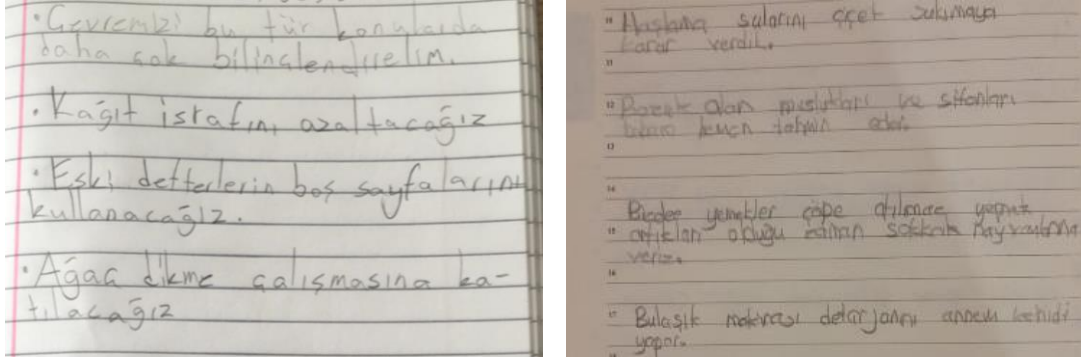 · Çevremizi bu tür konularda
daha çok bilinçlendirelim.
· Kağıt israfını azaltacağız
· Eski defterlerin boş sayfalarını
kullanacağız.
· Ağaç dikme çalışmasına ka-
tılacağız
Haşlama sularını
karar verdik.
Bozuk olan muslukları ve sifonları
babam hemen tahmin eder.
Bizde yemekler çöpe atılmaz yemek
artıkları olduğu zaman sokak hayvanlarına
veriz.
Bulaşık makinası deterjanını annem kendi
yapar.